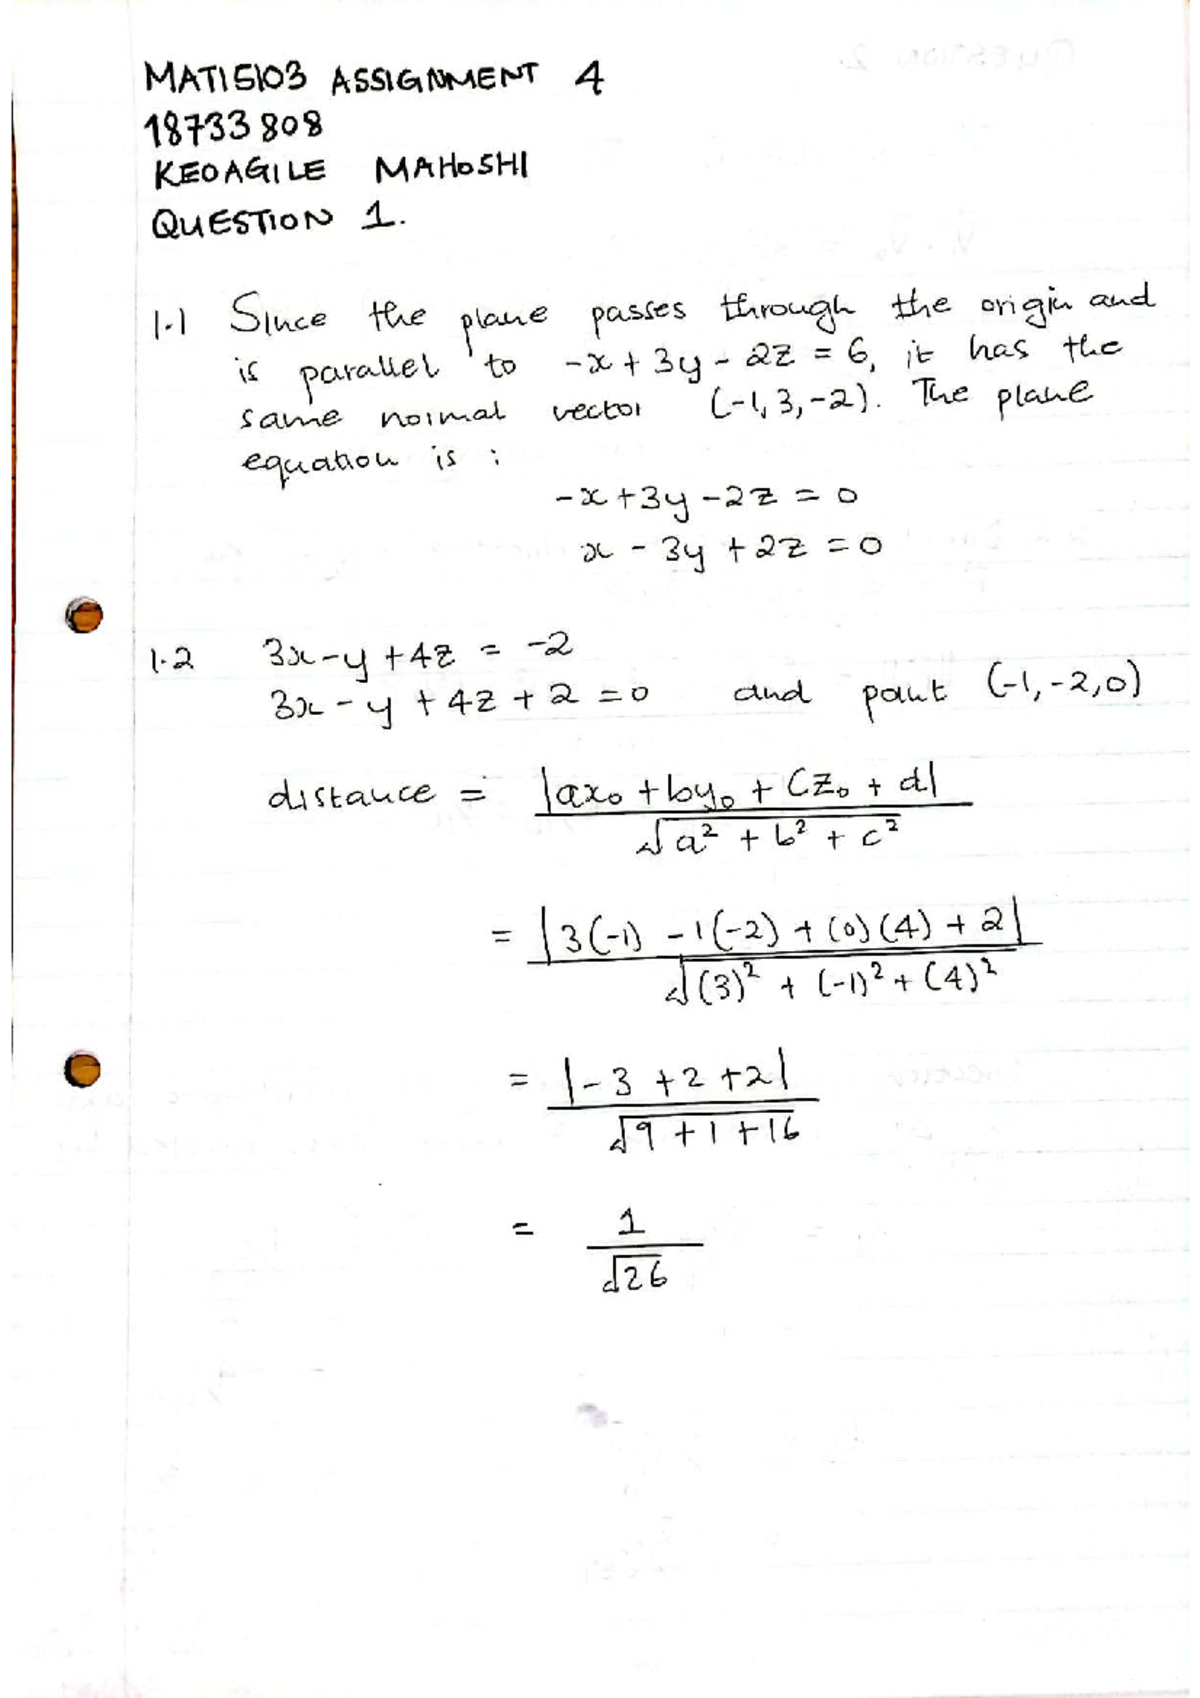 MAT15103 ASSIGNMENT 4
18733808
KEOAGILE MAHOSHI
QUESTION 1.
1.1 Since the plane passes through the origin and
is parallel to -x + 3y - 2z = 6, it has the
same normal vector (-1, 3, -2). The plane
equation is :
-x + 3y - 2z = 0
x - 3y + 2z = 0
1.2 3x - y + 4z = -2
3x - y + 4z + 2 = 0 and point (-1, -2, 0)
distance = |ax₀ + by₀ + Cz₀ + d|
√a² + b² + c²
= |3(-1) - 1(-2) + (0)(4) + 2|
√(3)² + (-1)² + (4)²
= |-3 + 2 + 2|
√9 + 1 + 16
= 1
√26